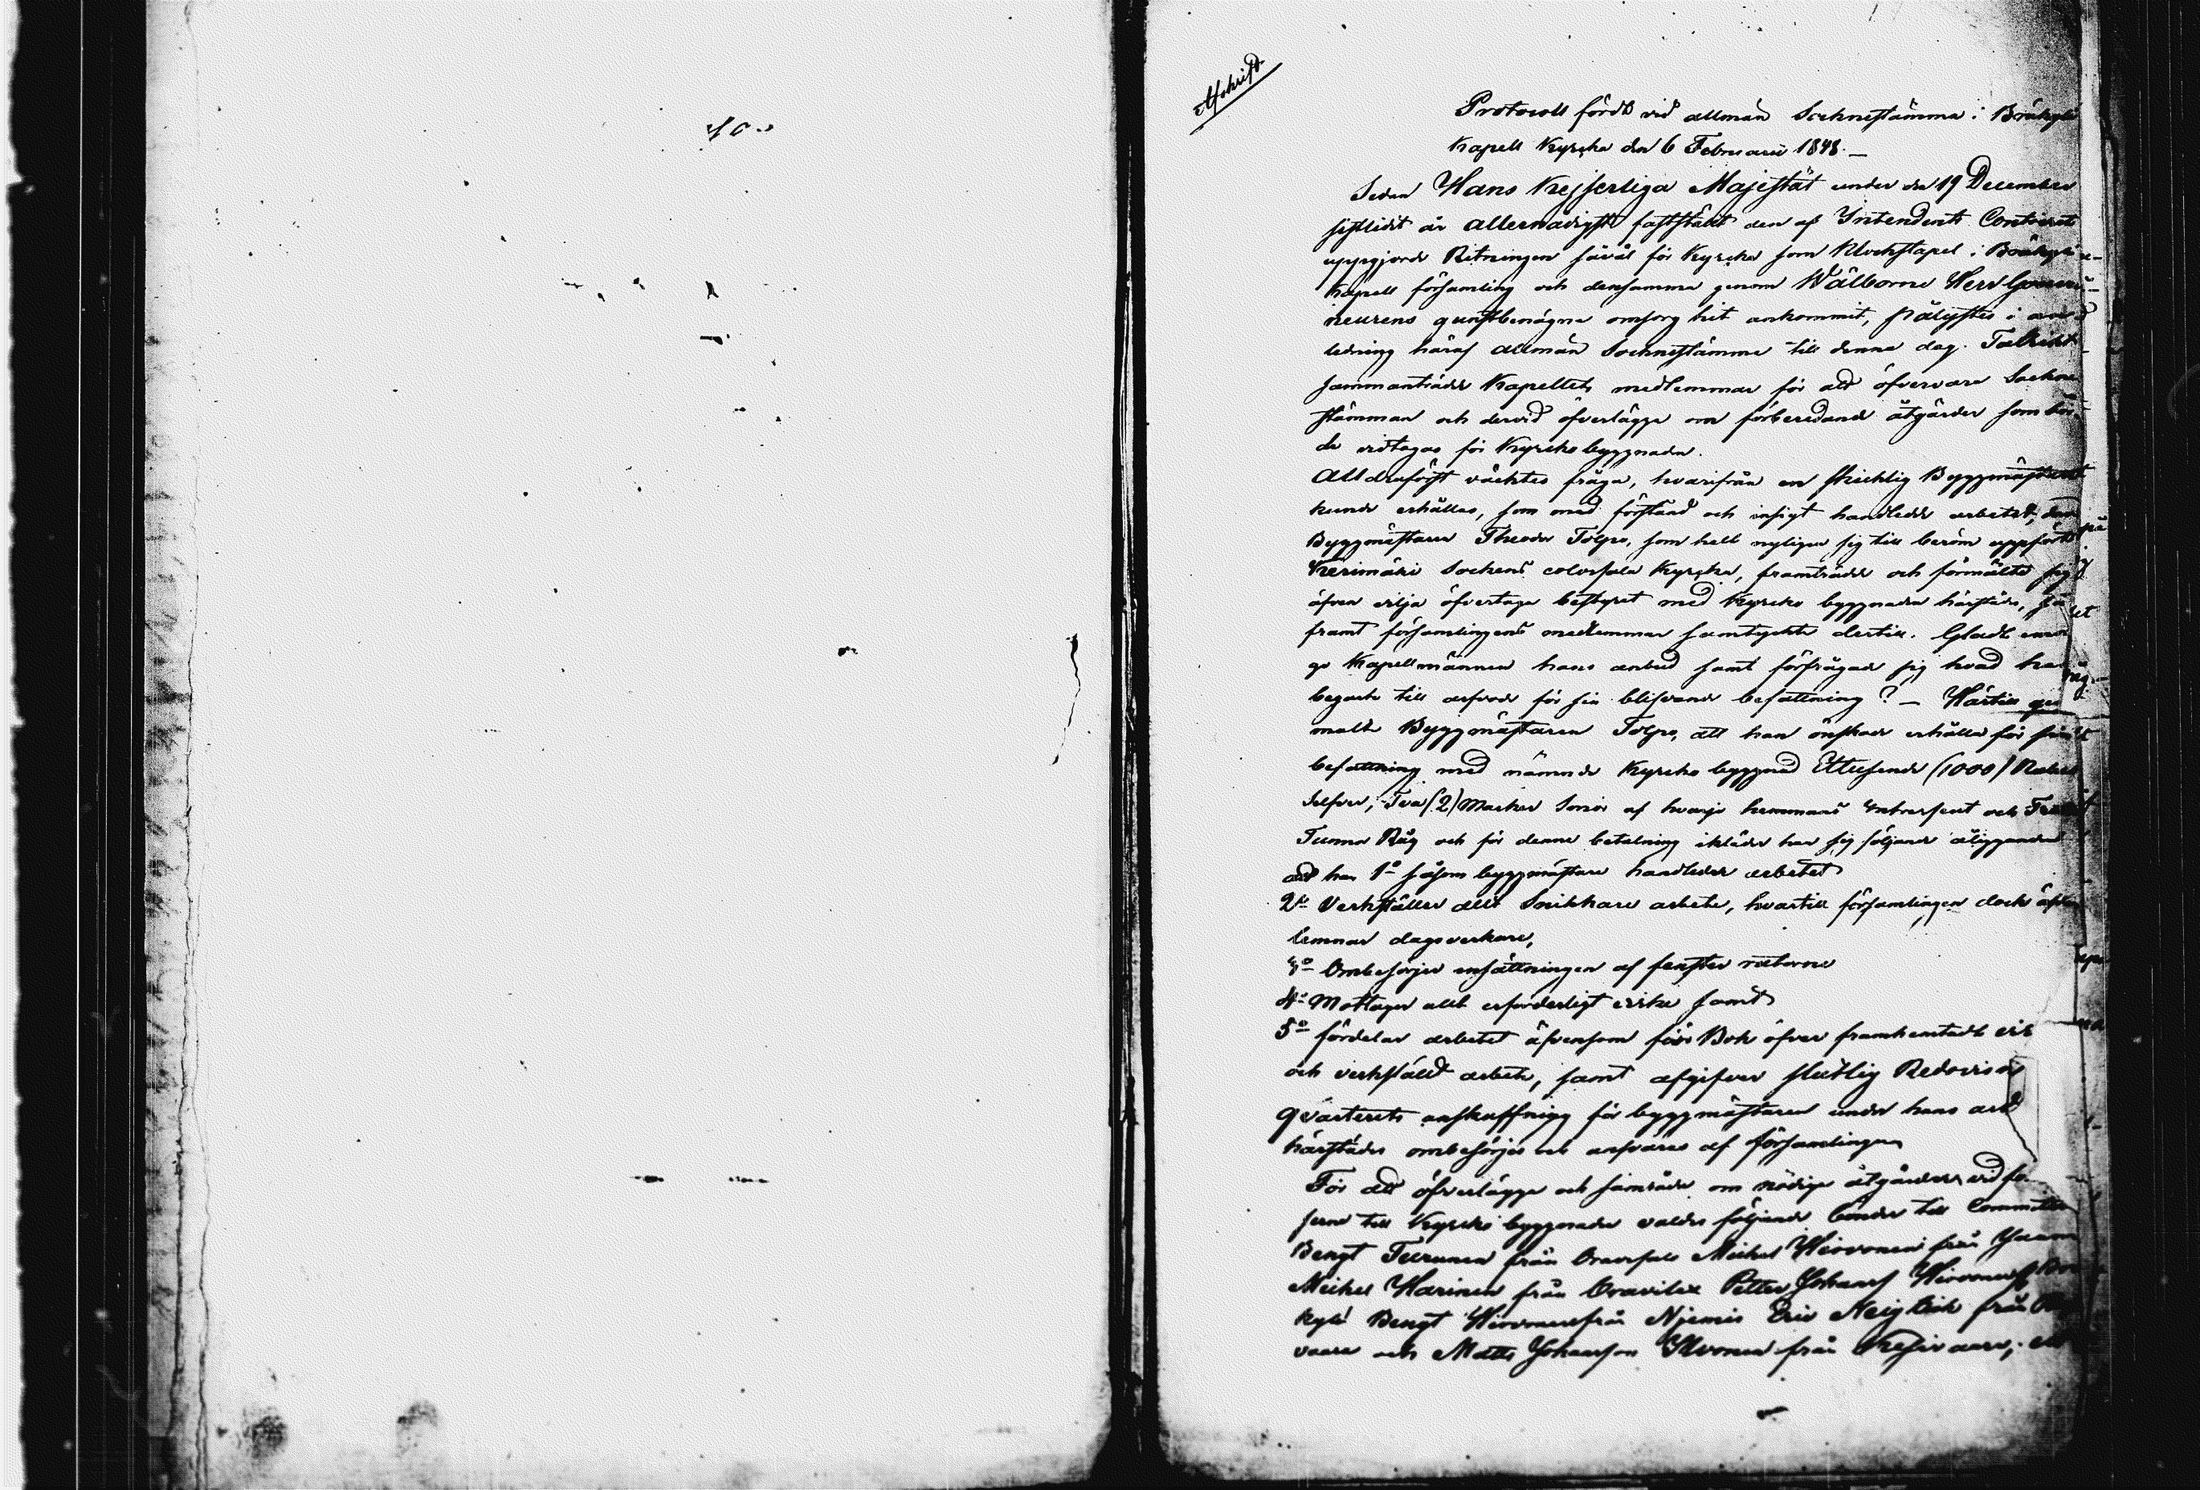 Afskrift
Protocoll fördt vid allmän Sochnestämma i Bräkylä
Kapell Kyrcka den 6 Februarii 1848. —
Sedan Hans Kejserliga Majestät under den 19 December
sistledit år allernådigst fastställt den af Intendents Contoiret
uppgjorde Ritningen såväl för Kyrcka som Klockstapel i Bräkylä
Kapell församling och densamma genom Wälborne Herr Gouver-
neurens gunstbenägna omsorg hit ankommit, pålystes i an-
ledning häraf allmän Sochnestämma till denna dag. Talrikt
sammanträdde Kapellets medlemmar för att öfvervara Sockne
stämman och dervid öfverlägga om förberedande åtgärder som bör-
de vidtagas för Kyrcko byggnaden.
Alldraförst väcktes fråga, hvarifrån en skicklig Byggmästare
kunde erhållas, som med förstånd och insigt handledde arbetet, då
Byggmästaren Theodor Tolpo, som helt nyligen sig till beröm uppfört
Kerimäki Sockens colossala Kyrcka, framträdde och förmälte sig
äfven vilja öfvertaga bestyret med Kyrcko byggnaden härstädes, så
framt församlingens medlemmar samtyckte dertill. Gladt emot
go Kapellmännen hans anbud samt förfrågade sig hvad han
begärte till arfvode för sin blifvande befattning? — Härtill gen
mälte Byggmästaren Tolpo, att han önskade erhålla för sin
befattning med nämnde Kyrcko byggnad Ettusende (1000) Rubel
Silfver, Två (2) Marker Smör af hvarje hemmans
Tunnor Råg och för denna betalning ikläder han sig följande åligganden
att han 1o såsom byggmästare handleder arbetet
2o Verkställer allt Snickare arbete, hvartill församlingen dock äfven
lemnar dagsverkare,
3o Ombesörjer insättningen af fenster rutorne
4o Mottager allt erforderligt virke samt
5o fördelar arbetet äfvensom förer Bok öfver framhemtadt virke
och verkställdt arbete, samt afgifver slutlig Redovisning
Qvarterets anskaffning för byggmästaren under hans
härstädes ombesörjes och ansvaras af församlingen
För att öfverlägga och samråda om nödiga åtgärder vid
till Kyrcko byggnaden valdes följande bönder till Committe
Bengt Turunen från Michel Hirvonen från
Michel Harinen från Petter Johansf Hirvonen från Brä
kylä Bengt Hirvonen från Niemis Eric Neiglick från
vaara och Matts Johansson Ilvonen från